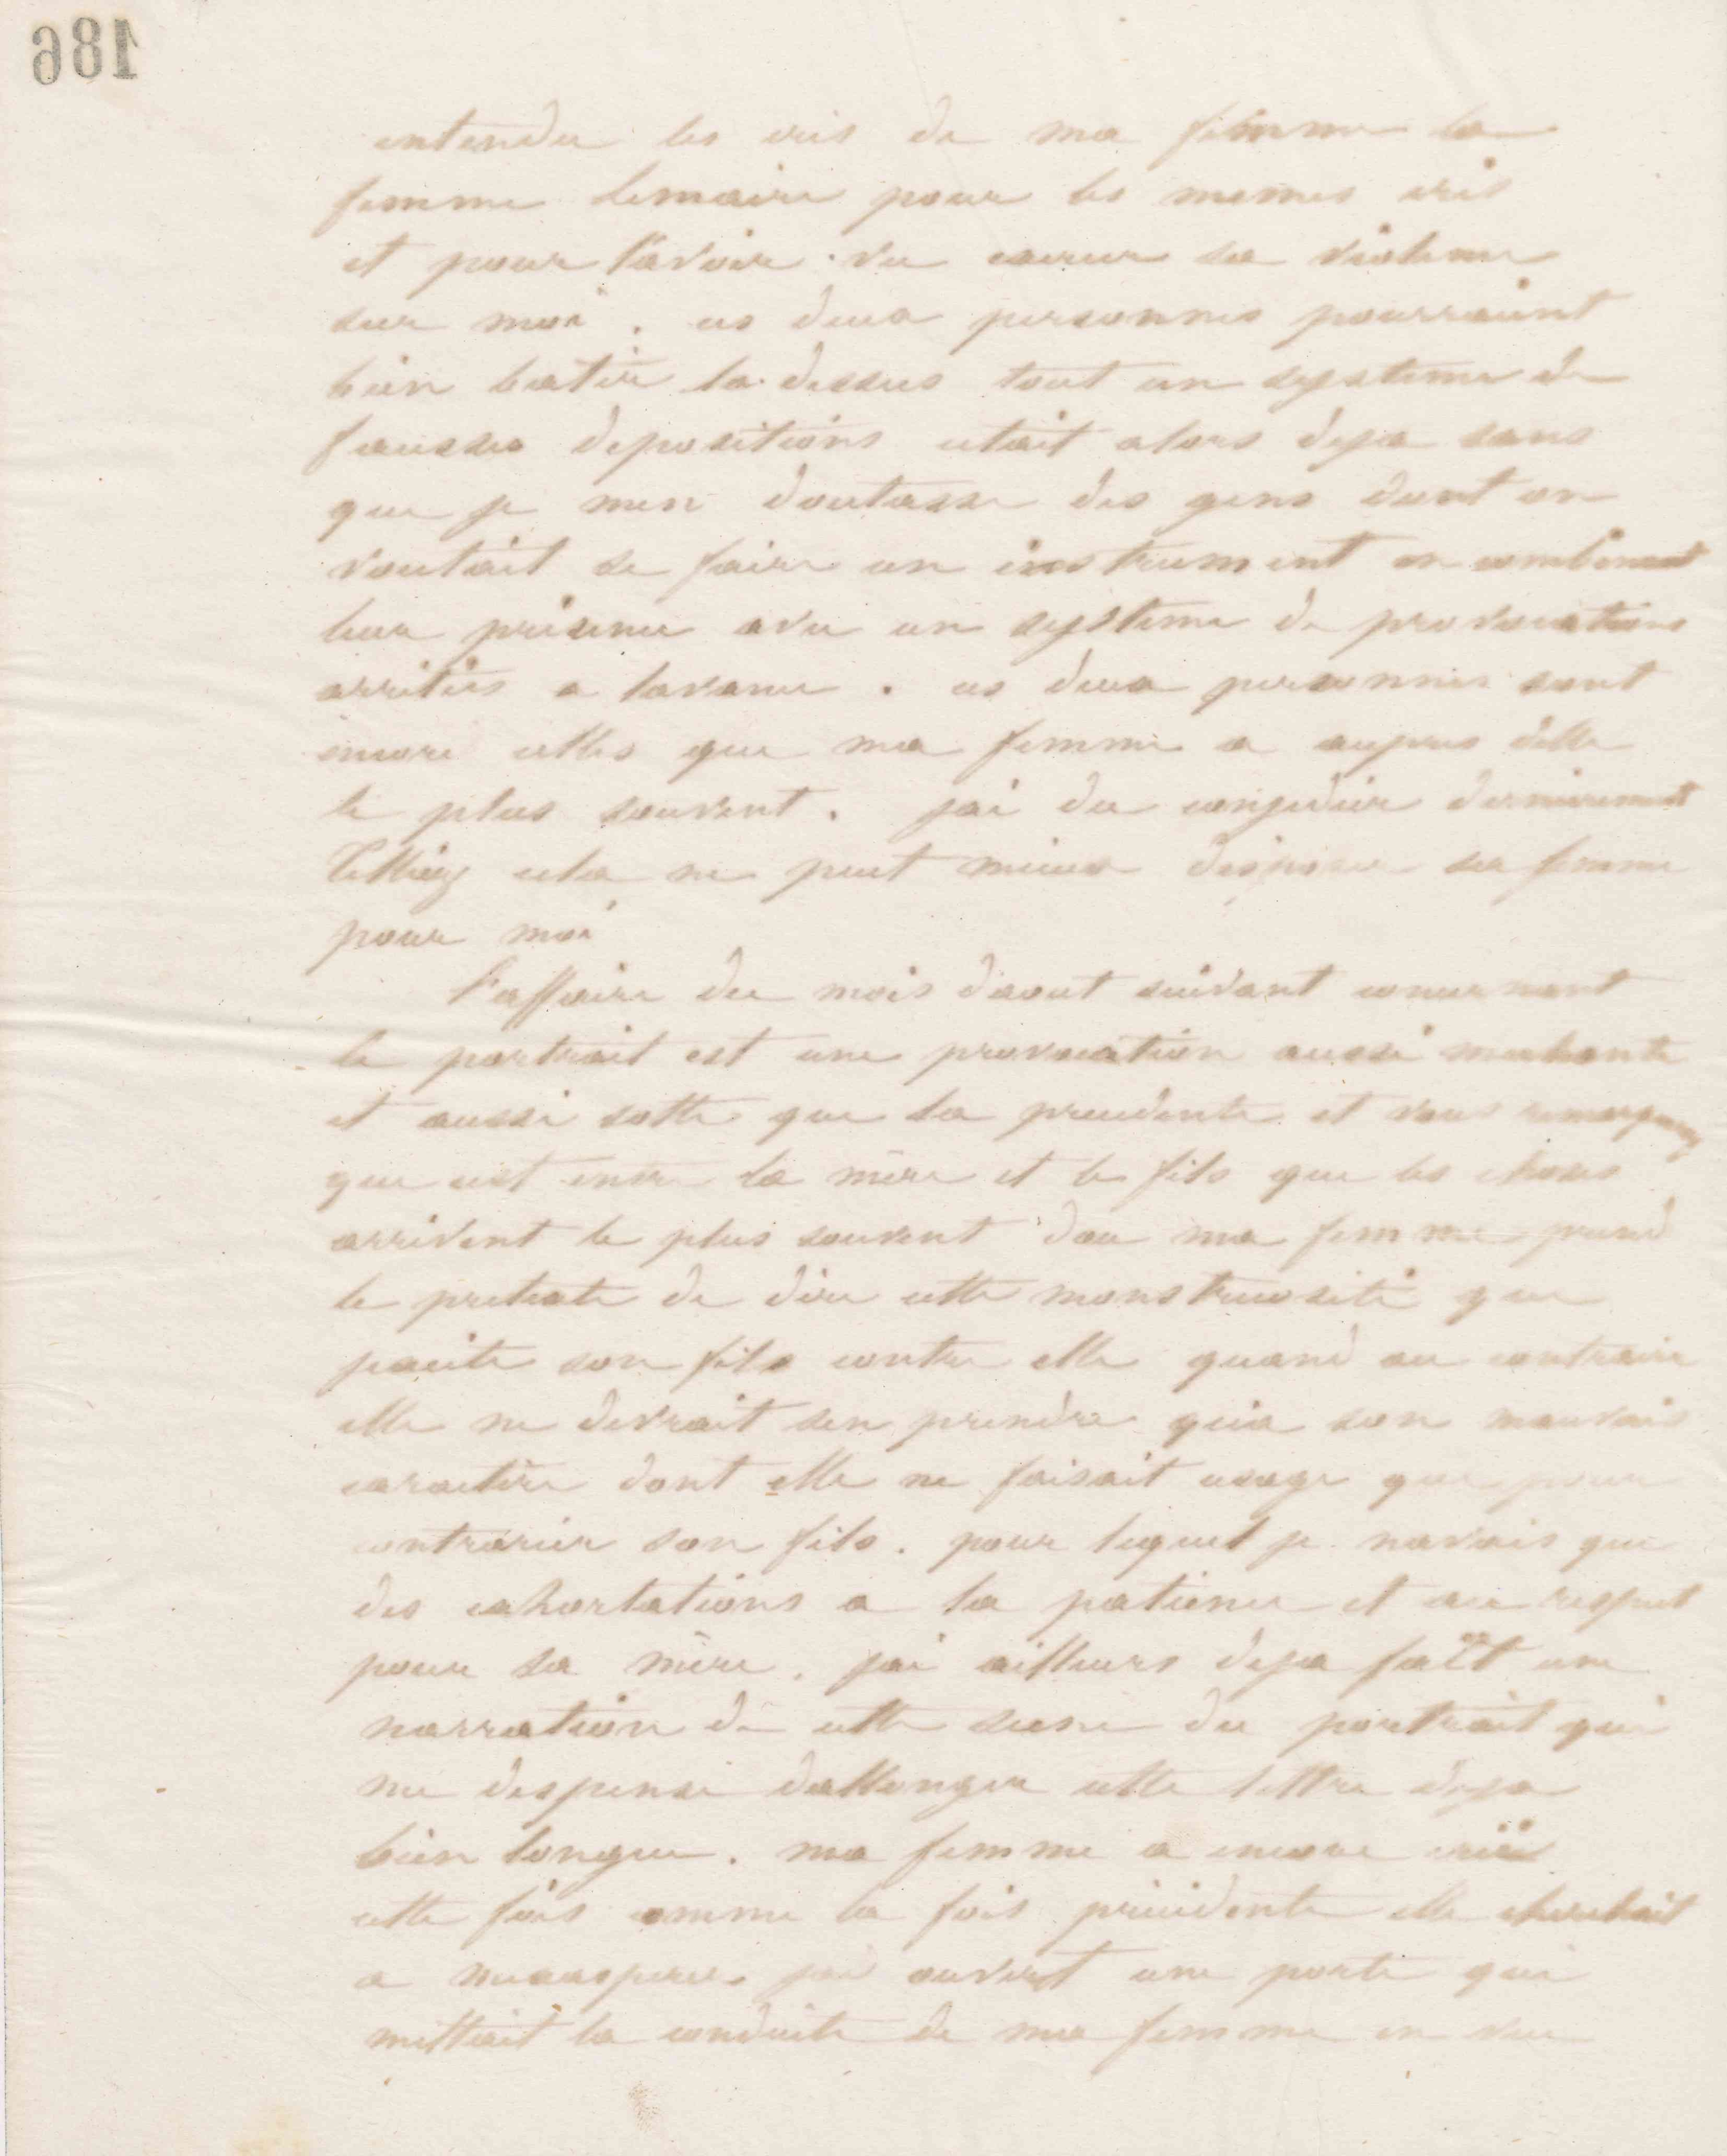 186
entendu les cris de ma femme la
femme lemaire pour les memes cris
et pour l'avoir vu exercer sa violence
sur moi. ces deux personnes pourraient
bien batir la dessus tout un systeme de
fausses depositions cetait alors deja sans
que je men doutasse des gens dont on
voulait se faire un instrument en combinant
leur présence avec un systeme de provocations
arrétées a lavance. ces deux personnes sont
encore celles que ma femme a aupres delle
le plus souvent. jai du congedier dernierement
cela ne peut mieux disposer sa femme
pour moi
l'affaire du mois daout suivant concernant
le portrait est une provocation aussi mechante
et aussi sotte que la precedente et vous remarquerez
que cest entre la mère et le fils que les choses
arrivent le plus souvent dou ma femme prend
le pretexte de dire cette monstruosité que
jexcite son fils contre elle quand au contraire
elle ne devrait sen prendre qua son mauvais
caractère dont elle ne faisait usage que pour
contrarier son fils. pour lequel je navais que
des exhortations a la patience et au respect
pour sa mère. jai ailleurs deja fait une
narration de cette scene du portrait qui
me dispense dallonger cette lettre deja
bien longue. ma femme a encore crié
cette fois comme la fois précédente elle cherchait
a mexasperer. jai ouvert une porte qui
mettait la conduite de ma femme en vue